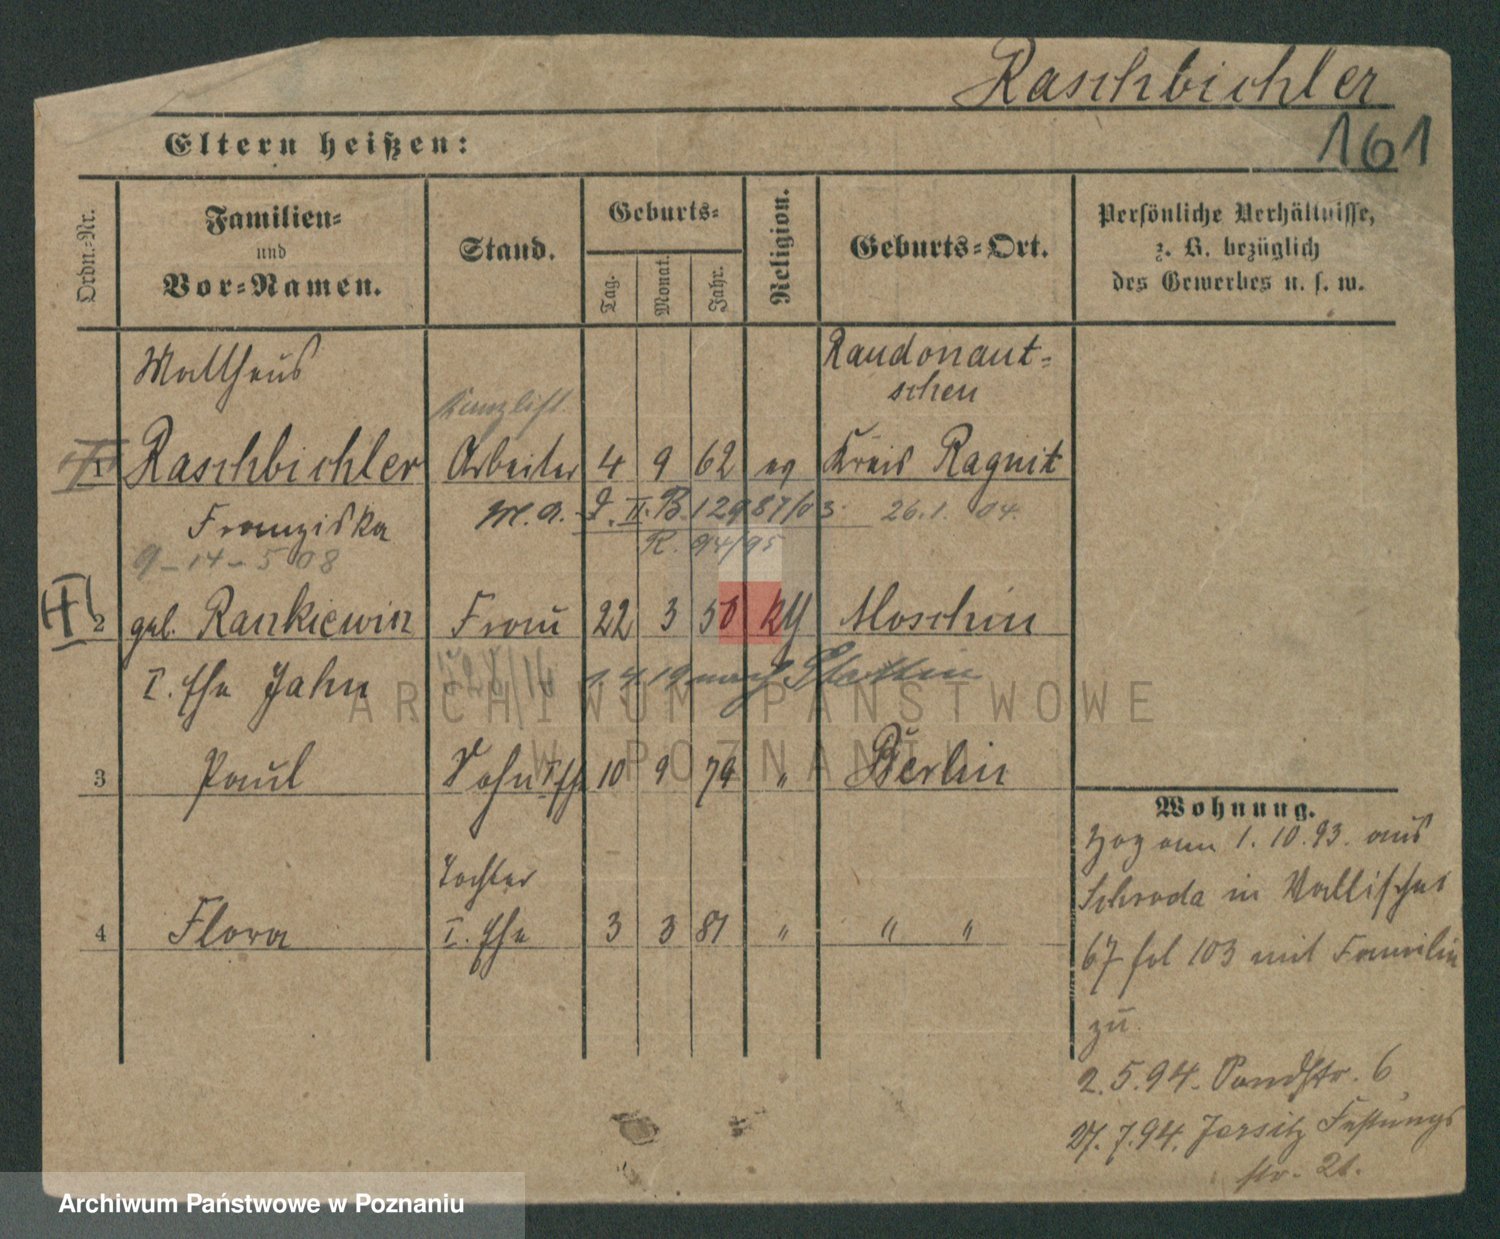 Raschbichler
161
Eltern heißen:
Ordn.-Nr.
Familien-
und
Vor-Namen.
Stand.
Geburts-
Tag.
Monat.
Jahr.
Religion.
Geburts-Ort.
Persönliche Verhältnisse,
z. B. bezüglich
des Gewerbes u. s. w.
Mattheus
Raudonaut-
schen
Kanzlist
1 Raschbichler Arbeiter 4 9 62 ev Kreis Ragnit
Franziska
M. A. J. II. B. 12987/03. 26.1. 04.
R. 94/95
9-14-5 08
II
2 geb. Rankiewin Frau 22 3 50 kth Moschin
I. Ehe Jahn
1.4.19 nach Stettin
3 Paul Sohn I. Ehe 10 9 79 " Berlin
Tochter
4 Flora I. Ehe 3 3 81 " " "
Wohnung.
Zog am 1.10.93. aus
Schroda in Wallischei
67 bei 103 mit Familie
zu
2.5.94. Sandstr. 6
27.7.94. Jersitz Festungs
str. 21.
ARCHIWUM PAŃSTWOWE
W POZNANIU
Archiwum Państwowe w Poznaniu